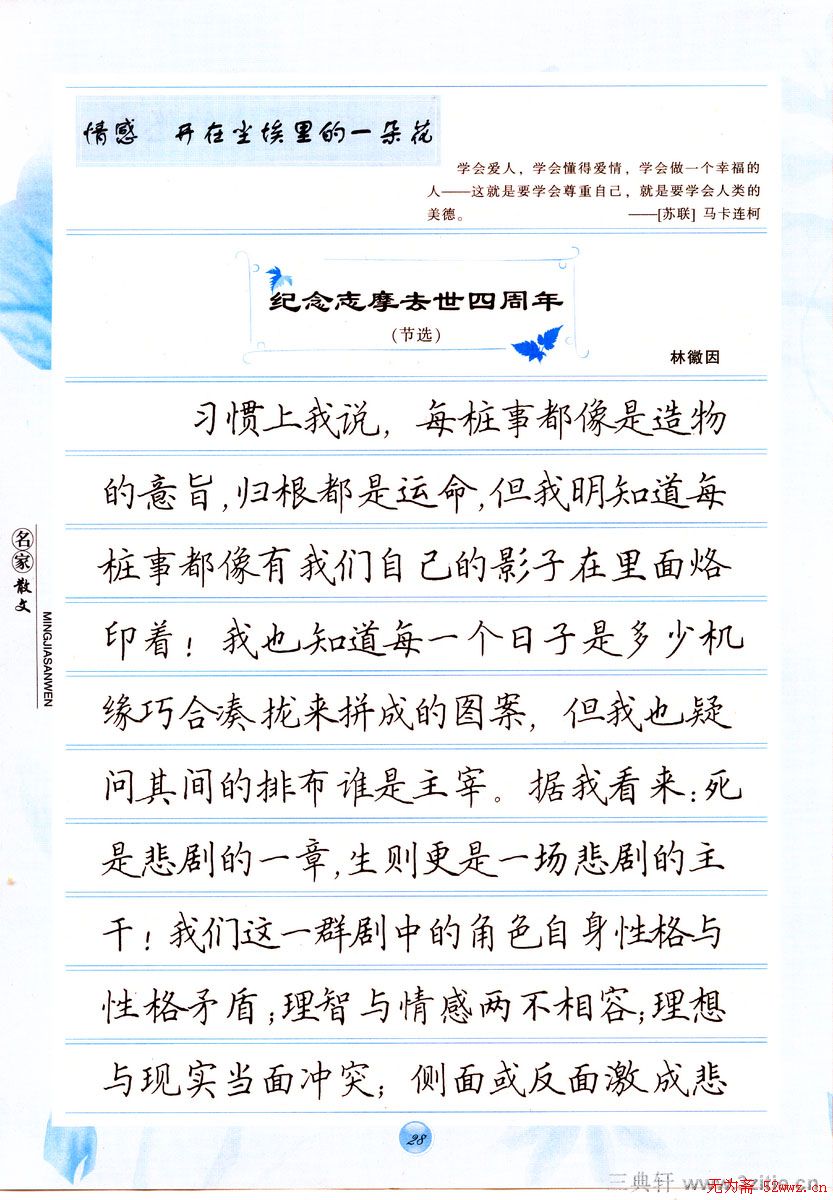 情感 开在尘埃里的一朵花
学会爱人，学会懂得爱情，学会做一个幸福的
人——这就是要学会尊重自己，就是要学会人类的
美德。 ——[苏联] 马卡连柯
纪念志摩去世四周年
(节选)
林徽因
习惯上我说，每桩事都像是造物
的意旨，归根都是运命，但我明知道每
桩事都像有我们自己的影子在里面烙
印着！我也知道每一个日子是多少机
缘巧合凑拢来拼成的图案，但我也疑
问其间的排布谁是主宰。据我看来：死
是悲剧的一章，生则更是一场悲剧的主
干！我们这一群剧中的角色自身性格与
性格矛盾；理智与情感两不相容；理想
与现实当面冲突；侧面或反面激成悲
名家散文
MINGJIASANWEN
28
三典轩
无为斋·52wwz.cn